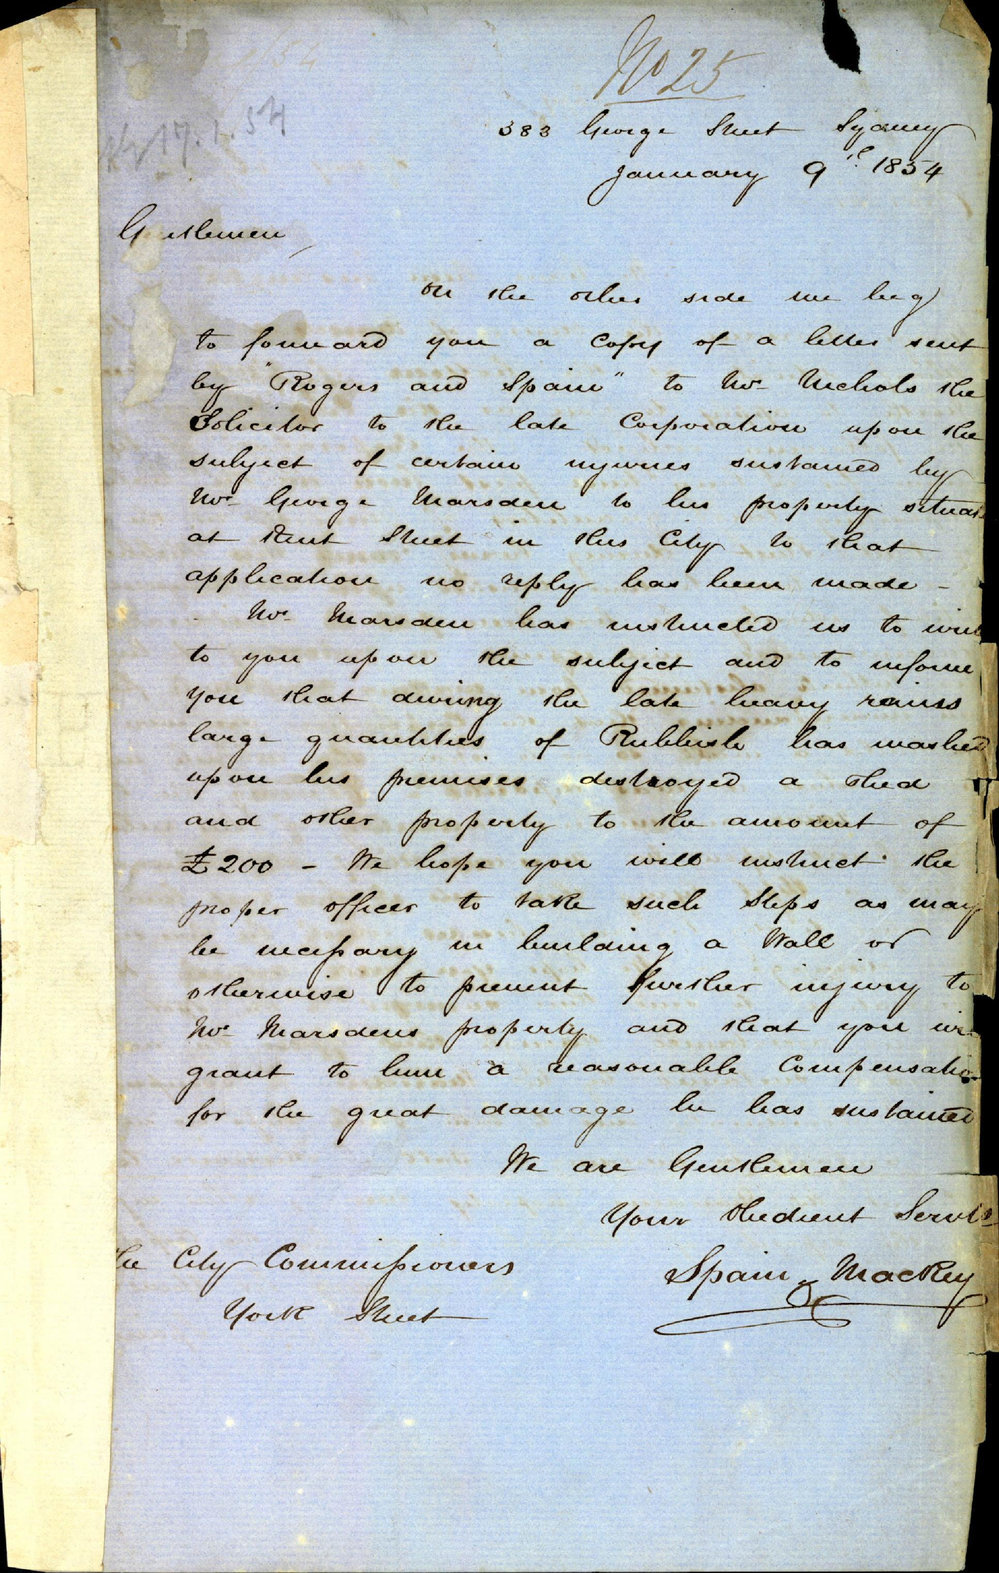 No 25
17.1.54
383 George Street Sydney
January 9th 1854
Gentlemen,
On the other side we beg
to forward you a Copy of a letter sent
by "Rogers and Spain" to Mr Nichols the
Solicitor to the late Corporation upon the
subject of certain injuries sustained by
Mr George Marsden to his property situat
at Kent Street in this City to that
application no reply has been made -
Mr Marsden has instructed us to write
to you upon the subject and to inform
you that during the late heavy rains
large quantities of Rubbish has washed
upon his premises destroyed a shed
and other property to the amount of
£200 - We hope you will instruct the
proper officer to take such steps as may
be necessary in building a Wall or
otherwise to prevent further injury to
Mr Marsdens property and that you wi
grant to him a reasonable Compensatio
for the great damage he has sustained
We are Gentlemen
Your Obedient Servts
Spain & Mackey
he City Commissioners
York Street